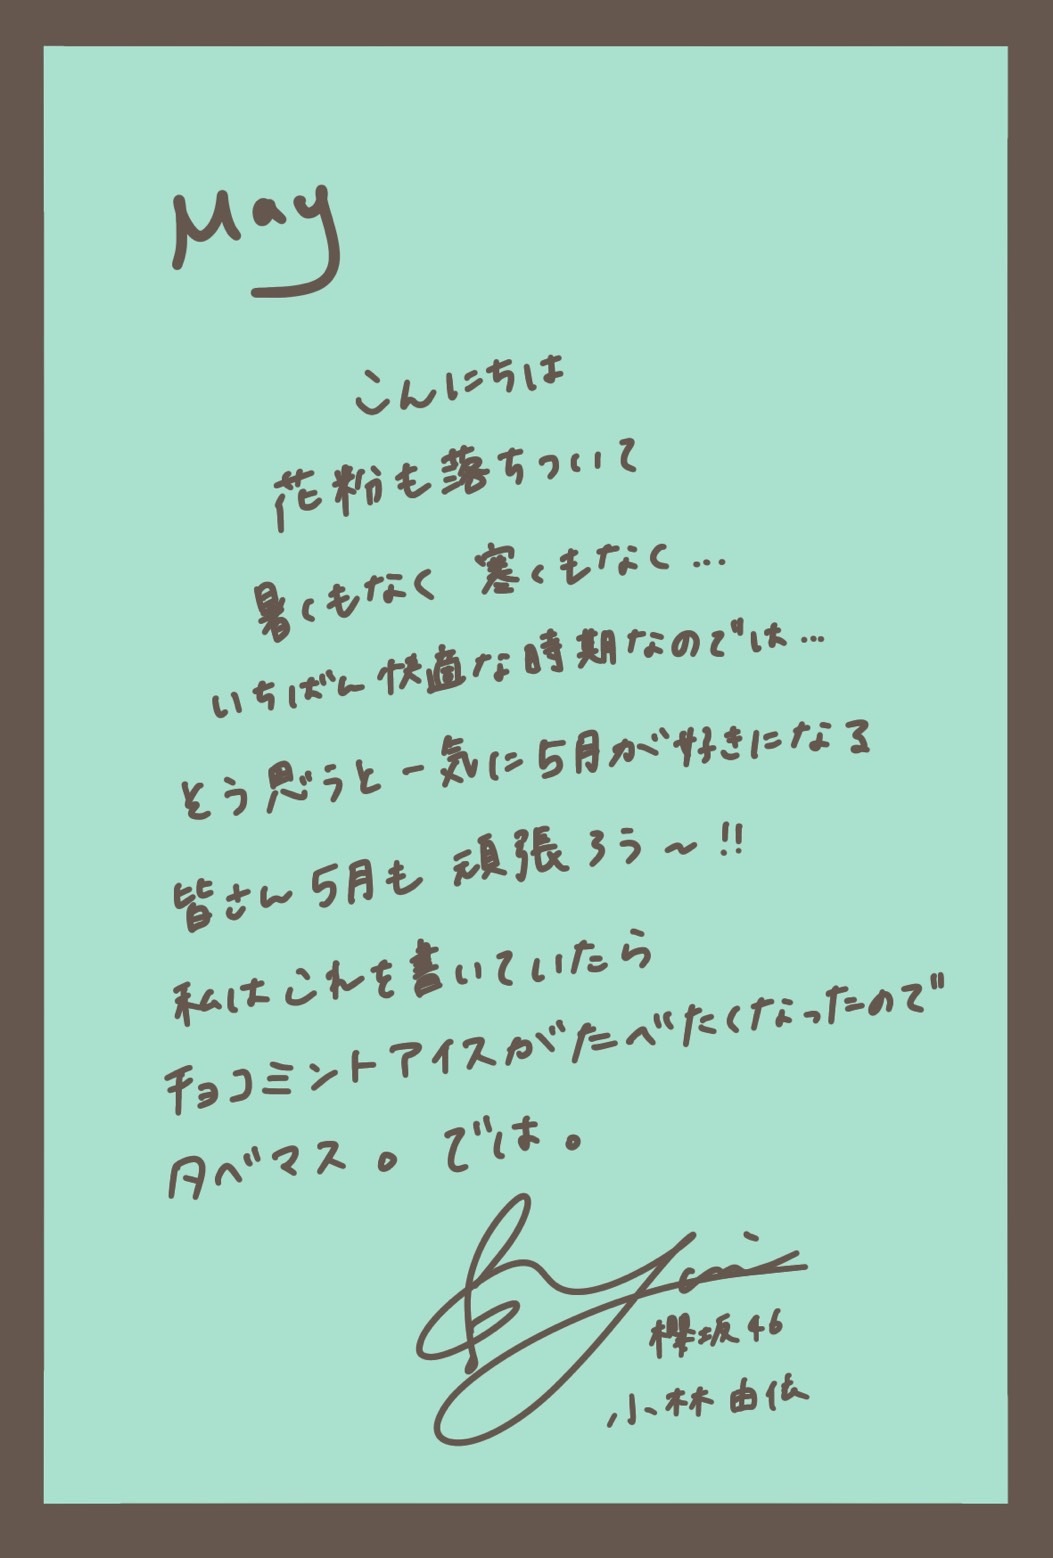 May
こんにちは
花粉も落ちついて
暑くもなく 寒くもなく…
いちばん快適な時期なのでは…
そう思うと一気に5月が好きになる
皆さん5月も 頑張ろう〜!!
私はこれを書いていたら
チョコミントアイスがたべたくなったので
タベマス。では。
櫻坂46
小林由依